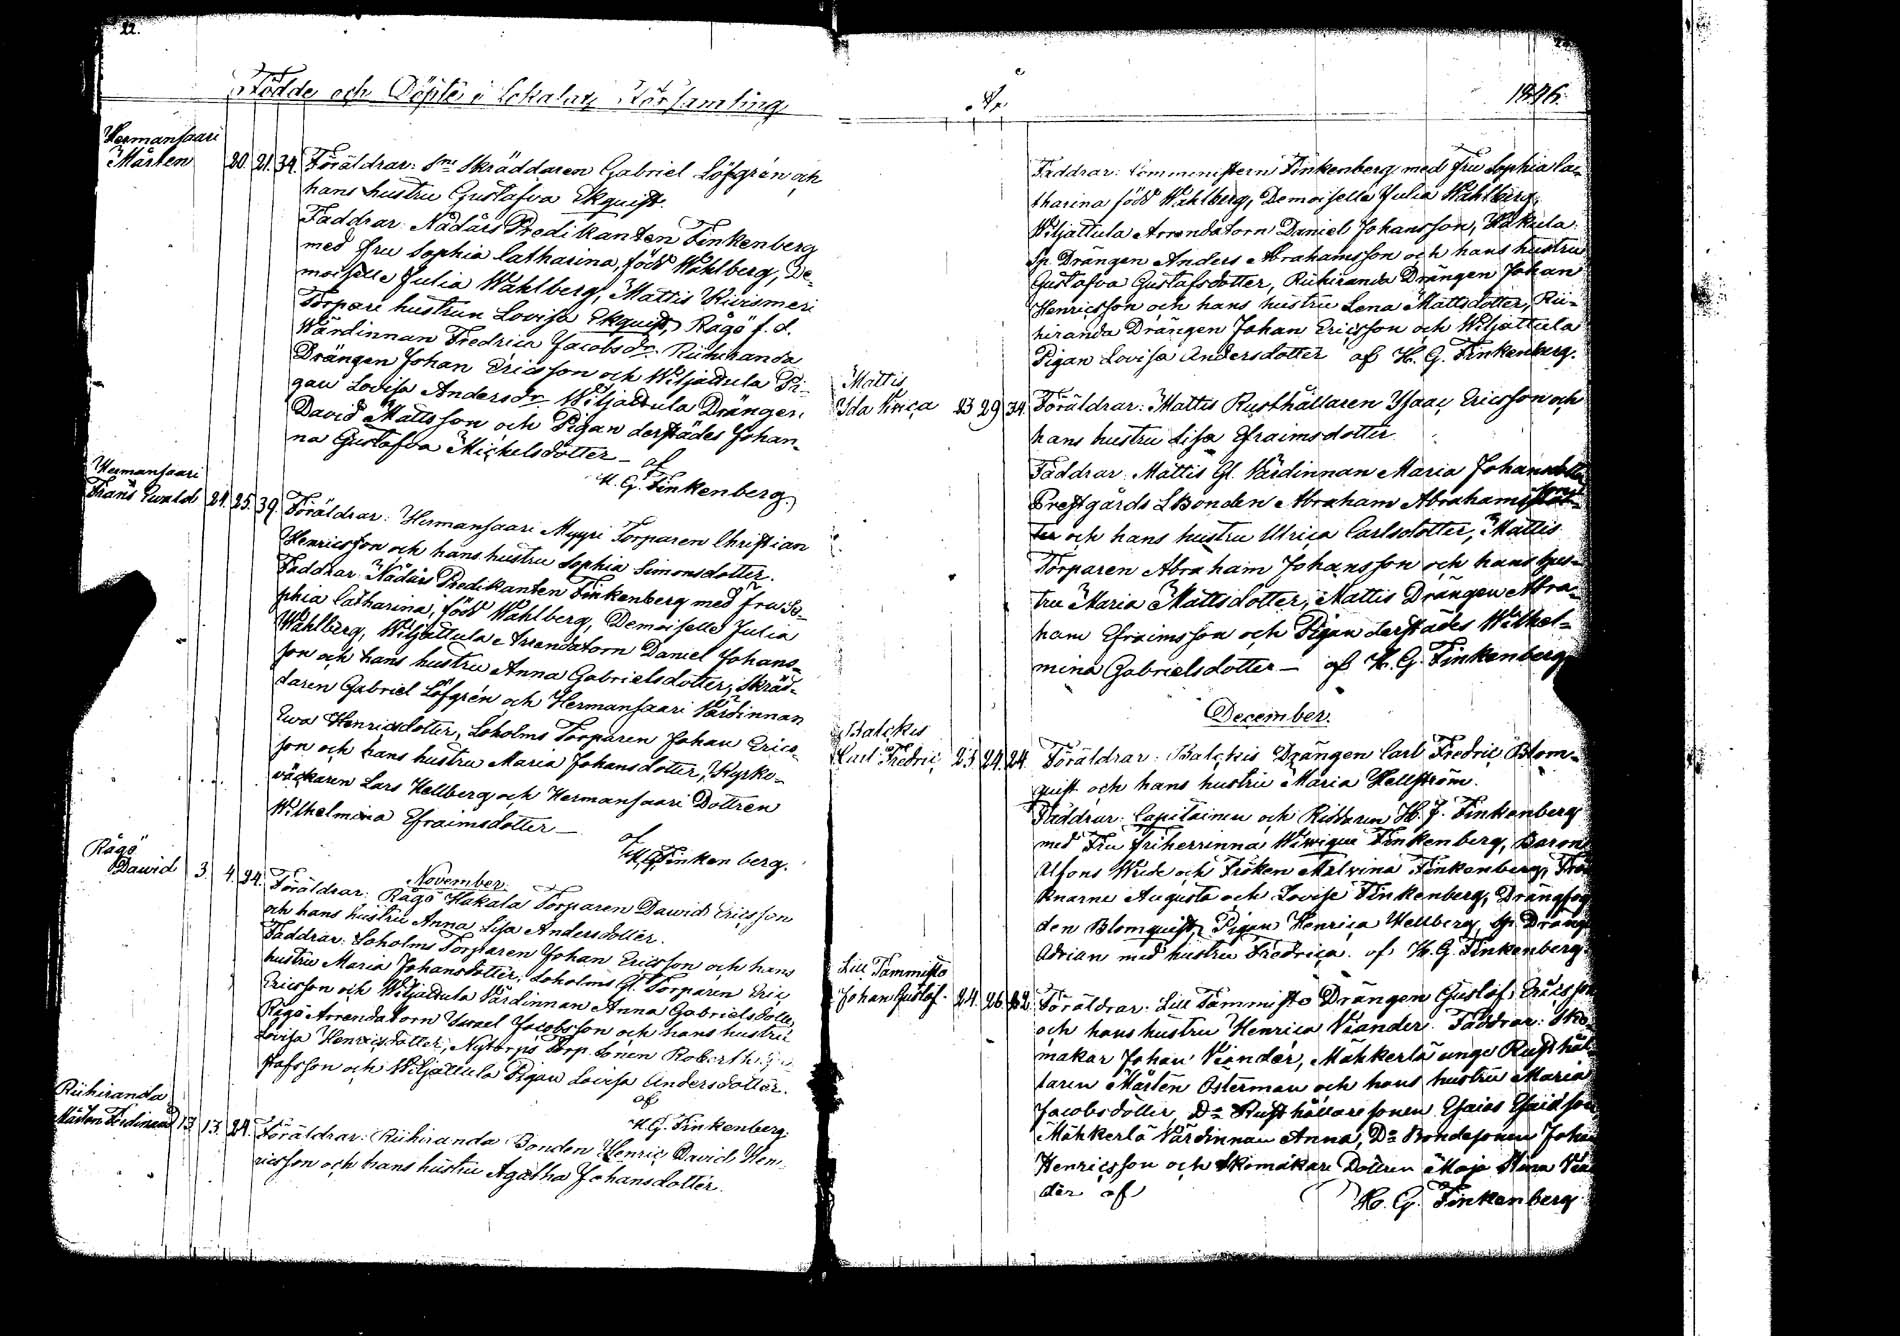 22.
Födde och Döpte i Lokalax Församling
Hermansaari
Mårten 20. 21. 34. Föräldrar: Sne Skräddaren Gabriel Löfgrén och
hans hustru Gustafva Ekquist.
Faddrar: Nådårs Predikanten Finkenberg
med fru Sophia Catharina, född Wahlberg, De=
moiselle Julia Wahlberg, Mattis Kivismeri
Torpare hustrun Lovisa Ekquist, Rågö f.d.
Wärdinnan Fredrica Jacobsdr. Riihiranda
Drängen Johan Ericsson och Wiljattula Pi=
gan Lovisa Andersdr Wiljattula Drängen
David Mattsson och Pigan derstädes Johan=
na Gustafva Michelsdotter—
af
H. G. Finkenberg.
Hermansaari
Frans Ewald 24. 25. 39. Föräldrar: Hermansaari Myyri Torparen Christian
Henricsson och hans hustru Sophia Simonsdotter.
Faddrar: Nådårs Predikanten Finkenberg med fru So=
phia Catharina, född Wahlberg, Demoiselle Julia
Wahlberg, Wiljattula Arrendatorn Daniel Johans=
son och hans hustru Anna Gabrielsdotter, Skräd=
daren Gabriel Löfgrén och Hermansaari Värdinnan
Ewa Henricsdotter, Loholms Torparen Johan Erics=
son och hans hustru Maria Johansdotter, Kyrko=
väckaren Lars Hellberg och Hermansaari Dottren
Wilhelmina Efraimsdotter—
af
H.G. Finkenberg.
November.
Rågö
Dawid 3. 4. 24. Föräldrar: Rågö Hakala Torparen Dawid Ericsson
och hans hustru Anna Lisa Andersdotter.
Faddrar: Loholms Torparen Johan Ericsson och hans
hustru Maria Johansdotter, Loholms Gl. Torparen Eric
Ericsson och Wiljattula Värdinnan Anna Gabrielsdotter,
Rågö Arrendatorn Israel Jacobsson och hans hustru
Lovisa Henricsdotter, Nytorps Torp. Sonen Robert Gu=
stafsson och Wiljattula Pigan Lovisa Andersdotter.
af
H.G. Finkenberg.
Riihiranda
Mårten Ferdinand 13. 13. 24. Föräldrar: Riihiranda Bonden Henric David Hen=
ricsson och hans hustru Agatha Johansdotter.
År 1846.
Faddrar: Comministern Finkenberg med fru Sophia Ca=
tharina född Wahlberg, Demoiselle Julia Wahlberg,
Wiljattula Arrendatorn Daniel Johansson, Hakula
Sp. Drängen Anders Abrahamsson och hans hustru
Gustafva Gustafsdotter, Riihiranda Drängen Johan
Henricsson och hans hustru Lena Mattsdotter, Rii=
hiranda Drängen Johan Ericsson och Wiljattula
Pigan Lovisa Andersdotter af H. G. Finkenberg.
Mattis
Ida Ulrica 23 29 34. Föräldrar: Mattis Rusthållaren Isaac Ericsson och
hans hustru Lisa Efraimsdotter.
Faddrar: Mattis Gl. Värdinnan Maria Johansdotter
Prestgårds LBonden Abraham Abrahamsson
och hans hustru Ulrica Carlsdotter, Mattis
Torparen Abraham Johansson och hans hus=
tru Maria Mattsdotter, Mattis Drängen Abra=
ham Efraimsson och Pigan derstädes Wilhel=
mina Gabrielsdotter— af H. G. Finkenberg
December.
Balckis
Carl Fredric 23 24 24. Föräldrar: Balckis Drängen Carl Fredric Blom=
quist och hans hustru Maria Hellström.
Faddrar: Capitainen och Riddaren H. J. Finkenberg
med Fru Friherrinna Finkenberg, Baron
Alfons Wrede och Fröken Malvina Finkenberg, Frö
knarne Augusta och Lovise Finkenberg, Drängfog
den Blomquist, Pigan Henrica Hellberg, Sp. Dräng
Adrian med hustru Fredrica. af H. G. Finkenberg.
Lill Tammisto
Johan Gustaf. 24. 26. Föräldrar: Lill Tammisto Drängen Gustaf Ericsson
och hans hustru Henrica Viander. Faddrar: Sko=
makar Johan Viander, Mähkerlä unge Rusthål=
laren Mårten Österman och hans hustru Maria
Jacobsdotter, Do Rusthållaresonen Esaias Esaidson
Mähkerlä Värdinnan Anna, Do Bondesonen Johan
Henricsson och Skomakare Dottren Maja Stina Vian
der af H. G. Finkenberg